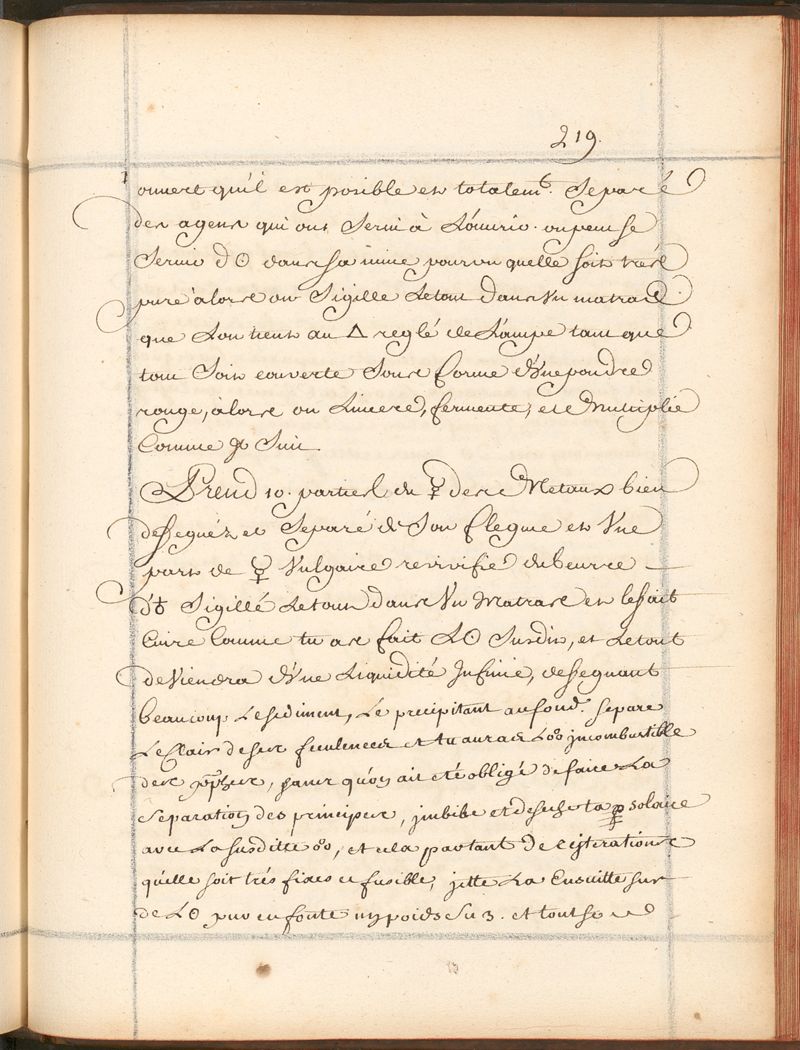 219.
ouvert qu'il est posible et totalem.t separé
des agens qui ont servi à L'ouvrir. on peut se
servir d☉ dans sa mine pourvu quelle soit trés
pure alors on sigille Letout dans Un matras
que Lon tient au △ reglé de Lampe tant que
tout soit couverte sous forme d'Une poudre
rouge, alors on Lincere, fermente, et Multiplie
Comme suit
Prend 10. parties du ☿ des Metaux bien
desequéz et separé de son flegme et Une
part de ☿ Vulgaire revivifié du beurre
d'♁ sigillé Letout dans Un Matras et le fait
Cuire Comme tu as fait L☉ susdit, et Letout
deViendra d'Une Liquidité Infinie, desequant
beaucoup Lesediment, Le precipitant aufond. separe
LeClair deses feculences et tu auras L'oo incombustible
des sans qu'on ait eté obligé defaire La
separation des principes, imbibe et deseche ta solaire
avec La susditte oo, et cela partant de reiterations
qu'elle soit trés fixes et fusible, jette La Ensuitte sur
de L☉ pur en fonte un poids su 3. et tout se